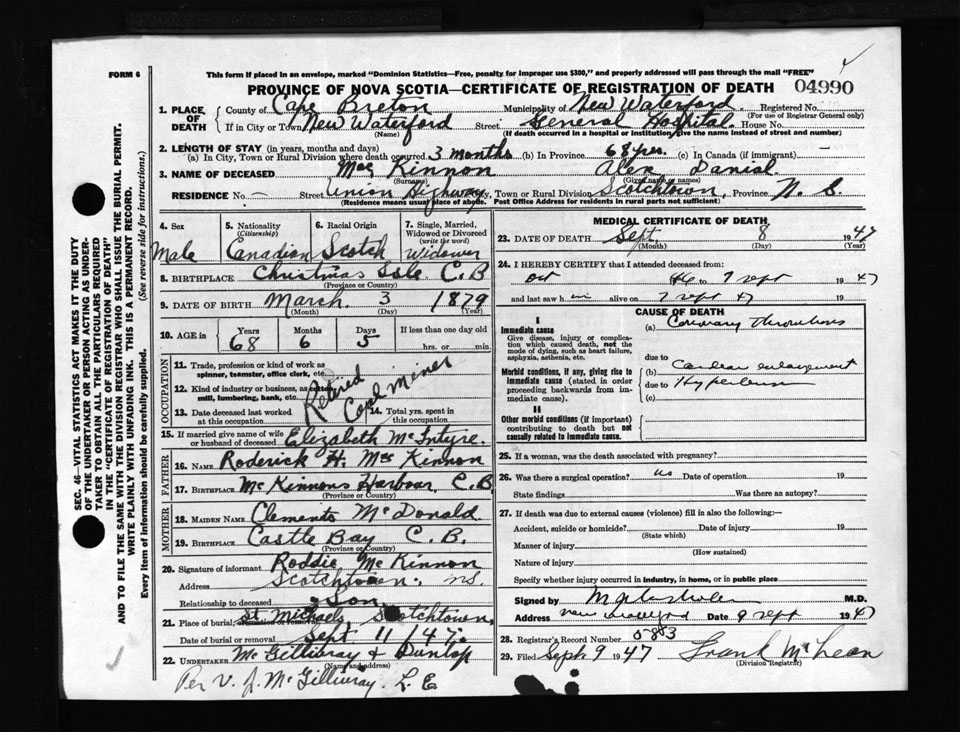 FORM 6
This form if placed in an envelope, marked "Dominion Statistics—Free, penalty for improper use $300," and properly addressed will pass through the mail "FREE"
PROVINCE OF NOVA SCOTIA—CERTIFICATE OF REGISTRATION OF DEATH 04990
1. PLACE OF DEATH
County of Cape Breton Municipality of New Waterford Registered No.
(For use of Registrar General only)
If in City or Town New Waterford Street General Hospital House No.
(Name) (If death occurred in a hospital or institution, give the name instead of street and number)
2. LENGTH OF STAY (in years, months and days)
(a) In City, Town or Rural Division where death occurred 3 months (b) In Province 68 yrs. (c) In Canada (if immigrant) —
3. NAME OF DECEASED Mac Kinnon Alex Danial
(Surname) (Given name or names)
RESIDENCE No. — Street Union Highway City, Town or Rural Division Scotchtown, Province N. S.
(Residence means usual place of abode. Post Office Address for residents in rural parts not sufficient)
4. Sex Male
5. Nationality (Citizenship) Canadian
6. Racial Origin Scotch
7. Single, Married, Widowed or Divorced (write the word) Widower
8. BIRTHPLACE Christmas Isle C.B
(Province or Country)
9. DATE OF BIRTH March 3 1879
(Month) (Day) (Year)
10. AGE in Years Months Days If less than one day old
68 6 5 hrs. or min.
OCCUPATION
11. Trade, profession or kind of work as spinner, teamster, office clerk, etc.
12. Kind of industry or business, as cotton mill, lumbering, bank, etc.
Retired Coal Miner
13. Date deceased last worked at this occupation
14. Total yrs. spent in this occupation
15. If married give name of wife or husband of deceased Elizabeth McIntyre.
FATHER
16. NAME Roderick H. Mac Kinnon
17. BIRTHPLACE Mc Kinnons Harbour C.B
(Province or Country)
MOTHER
18. MAIDEN NAME Clements McDonald
19. BIRTHPLACE Castle Bay C.B.
(Province or Country)
20. Signature of informant Roddie McKinnon
Address Scotchtown. NS.
Relationship to deceased Son
21. Place of burial, cremation or removal St Michaels, Scotchtown,
Date of burial or removal Sept 11/47.
22. UNDERTAKER McGillivray & Dunlop
(Name and address)
Per V. J. McGillivray. L. E
MEDICAL CERTIFICATE OF DEATH
23. DATE OF DEATH Sept. 8 1947
(Month) (Day) (Year)
24. I HEREBY CERTIFY that I attended deceased from:
Oct 46 to 7 Sept 1947
and last saw him alive on 7 Sept 47 19
CAUSE OF DEATH
I
Immediate cause
Give disease, injury or complication which caused death, not the mode of dying, such as heart failure, asphyxia, asthenia, etc.
(a) Coronary thrombosis
due to
Morbid conditions, if any, giving rise to immediate cause (stated in order proceeding backwards from immediate cause).
(b) Cardiac enlargement
due to
(c)
II
Other morbid conditions (if important) contributing to death but not causally related to immediate cause.
25. If a woman, was the death associated with pregnancy?
26. Was there a surgical operation? Date of operation 19
State findings Was there an autopsy?
27. If death was due to external causes (violence) fill in also the following:—
Accident, suicide or homicide? Date of injury 19
(State which)
Manner of injury
(How sustained)
Nature of injury
Specify whether injury occurred in industry, in home, or in public place
Signed by M.D.
Address New Waterford Date 9 Sept 1947
28. Registrar's Record Number 0583
29. Filed Sept 9 1947 Frank McLean
(Division Registrar)
SEC. 46—VITAL STATISTICS ACT MAKES IT THE DUTY
OF THE UNDERTAKER OR PERSON ACTING AS UNDER-
TAKER TO OBTAIN ALL THE PARTICULARS REQUIRED
IN THE "CERTIFICATE OF REGISTRATION OF DEATH"
AND TO FILE THE SAME WITH THE DIVISION REGISTRAR WHO SHALL ISSUE THE BURIAL PERMIT.
WRITE PLAINLY WITH UNFADING INK. THIS IS A PERMANENT RECORD.
Every item of information should be carefully supplied. (See reverse side for instructions.)